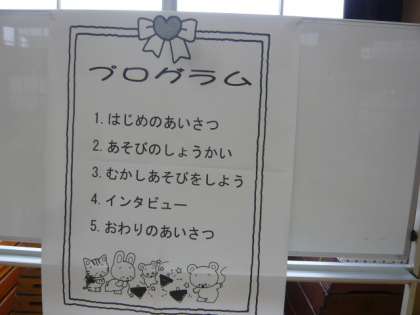 プログラム
1.はじめのあいさつ
2.あそびのしょうかい
3.むかしあそびをしよう
4.インタビュー
5.おわりのあいさつ